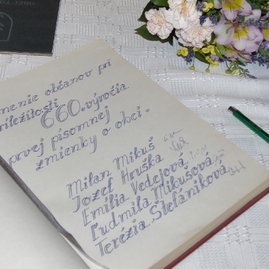 nenie občanov pri
ríležitosti
660. výročia
prvej písomnej
zmienky o obci.
Milan Mikuš
Jozef Hruška
Emília Vedejová
Ľudmila Mikušová
Terézia Štefániková